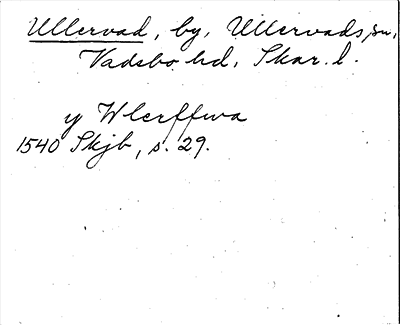 Ullervad, by, Ullervads sn,
Vadsbo hd, Skar. l.
y Wlerffwa
1540 Skjb, s. 29.